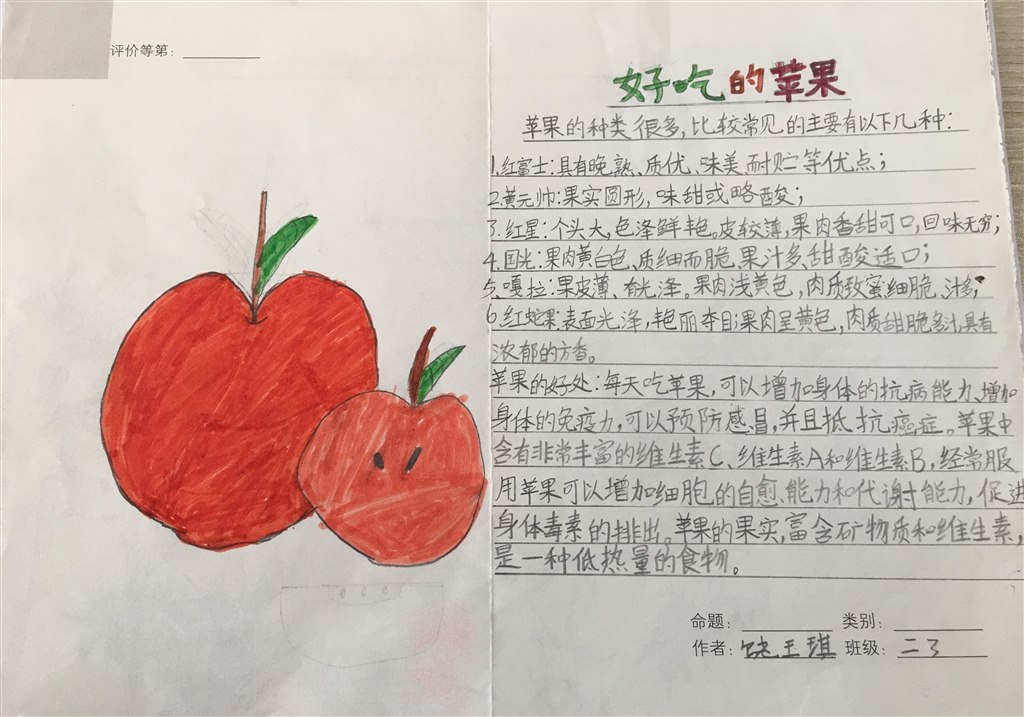 评价等第:
好吃的苹果
苹果的种类很多,比较常见的主要有以下几种:
1.红富士:具有晚熟、质优、味美、耐贮等优点;
2.黄元帅:果实圆形,味甜或略酸;
3.红星:个头大,色泽鲜艳。皮较薄,果肉香甜可口,回味无穷;
4.国光:果肉黄白色、质细而脆、果汁多、甜酸适口;
5.嘎拉:果皮薄、有光泽。果肉浅黄色,肉质致蜜细脆、汁多;
6.红蛇果:表面光泽,艳丽夺目;果肉呈黄色,肉质甜脆多汁,具有
浓郁的方香。
苹果的好处:每天吃苹果,可以增加身体的抗病能力、增加
身体的免疫力,可以预防感昌,并且抵抗癌症。苹果中
含有非常丰富的维生素C、维生素A和维生素B,经常服
用苹果可以增加细胞的自愈能力和代谢能力,促进
身体毒素的排出。苹果的果实,富含矿物质和维生素,
是一种低热量的食物。
命题: 类别:
作者:饶王琪 班级:二3